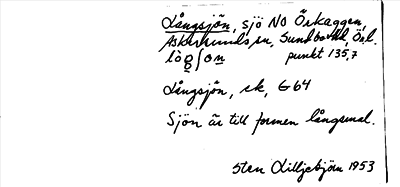 Långsjön, sjö NO Örkaggen,
Askersunds sn, Sundbo hd, Örl.
lòg/on punkt 135,7
Långsjön, ek, G 64
Sjön är till formen långsmal.
Sten Lilljebjörn 1953